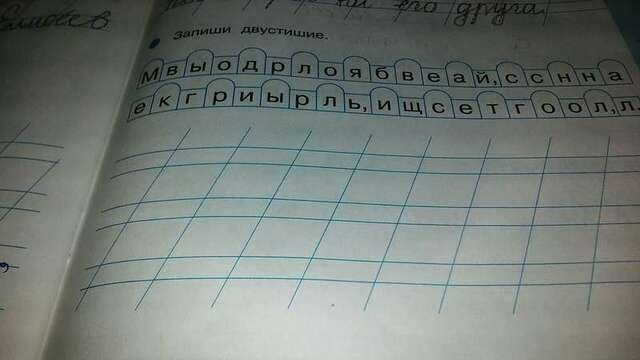 его друга,
Запиши двустишие.
Мвыодрлоябвеай,ссннна
екгриырль,ищсетгоол,л.